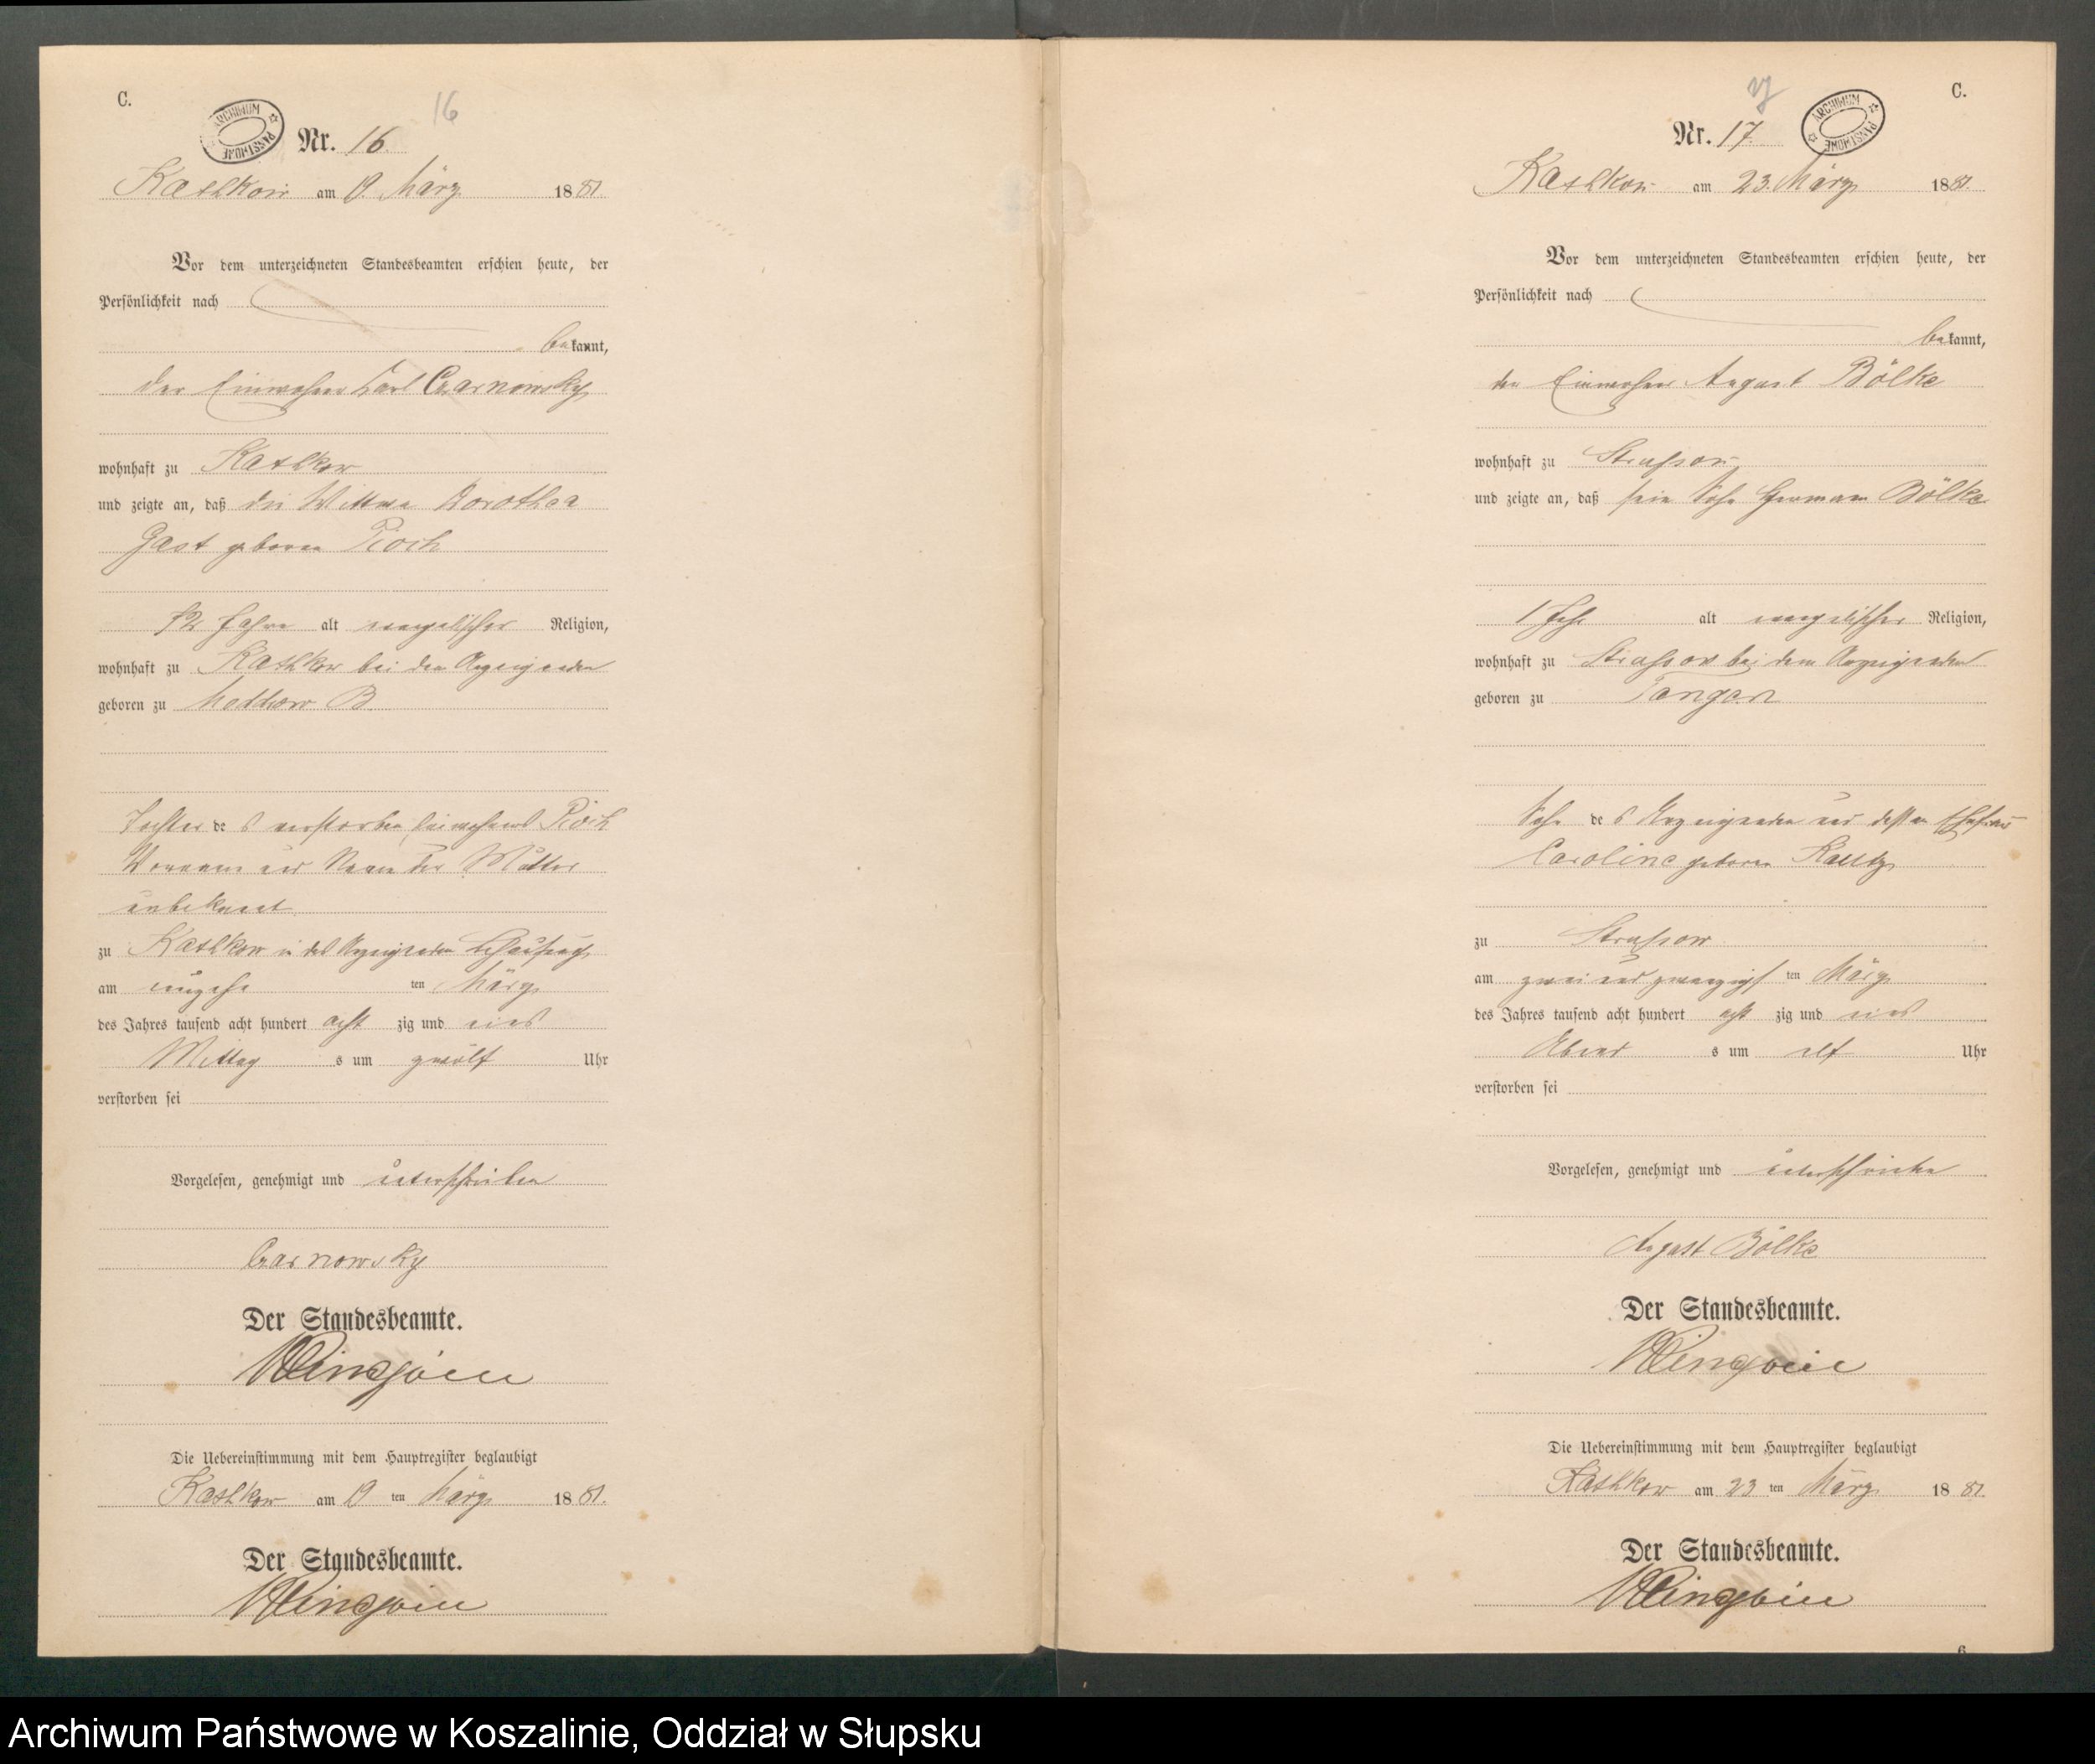 C.
16
ARCHIWUM PAŃSTWOWE
Nr. 16.
Kathkow am 19 März 1881
Vor dem unterzeichneten Standesbeamten erschien heute, der
Persönlichkeit nach
bekannt,
der Einwohner Carl Czarnowsky
wohnhaft zu Kathkow
und zeigte an, daß die Wittwe Dorothea
Gast geborene Pioch
Jahre alt evangelischer Religion,
wohnhaft zu Kathkow bei dem Anzeigenden
geboren zu B
Tochter des verstorbenen Einwohners Pioch
Vorname und Name der Mutter
unbekannt
zu Kathkow in des Anzeigenden Behausung
am ten März
des Jahres tausend acht hundert acht zig und eins
Mittag s um zwölf Uhr
verstorben sei
Vorgelesen, genehmigt und unterschrieben
Czarnowsky
Der Standesbeamte.
Die Uebereinstimmung mit dem Hauptregister beglaubigt
Kathkow am 19 ten März 1881.
Der Standesbeamte.
C.
ARCHIWUM PAŃSTWOWE
Nr. 17.
Kathkow am 23. März 1881.
Vor dem unterzeichneten Standesbeamten erschien heute, der
Persönlichkeit nach
bekannt,
der Einwohner August Bölke
wohnhaft zu Strussow
und zeigte an, daß sein Sohn Herman Bölke
1 Jahr alt evangelischer Religion,
wohnhaft zu Strussow bei dem Anzeigenden
geboren zu Tangen
Sohn des Anzeigenden und dessen Ehefrau
Caroline geborene Kautz
zu Strussow
am zwei und zwanzigsten März
des Jahres tausend acht hundert acht zig und eins
Abend s um elf Uhr
verstorben sei
Vorgelesen, genehmigt und unterschrieben
August Bölke
Der Standesbeamte.
Die Uebereinstimmung mit dem Hauptregister beglaubigt
Kathkow am 23 ten März 1881.
Der Standesbeamte.
6
Archiwum Państwowe w Koszalinie, Oddział w Słupsku